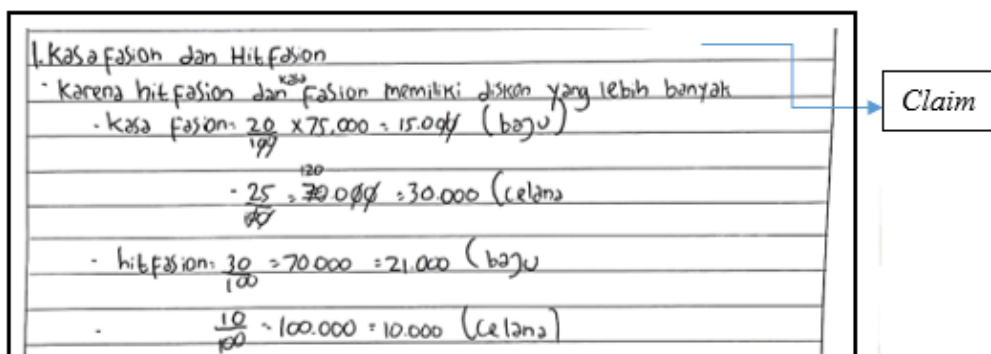 1. Kasa Fasion dan Hit Fasion
- Karena hit fasion dan kasa fasion memiliki diskon yang lebih banyak
- Kasa fasion: 20/100 x 75.000 = 15.000 (baju)
- 25/100 = 120.000 = 30.000 (celana
- hit fasion: 30/100 = 70.000 = 21.000 (baju
- 10/100 - 100.000 = 10.000 (celana)
Claim